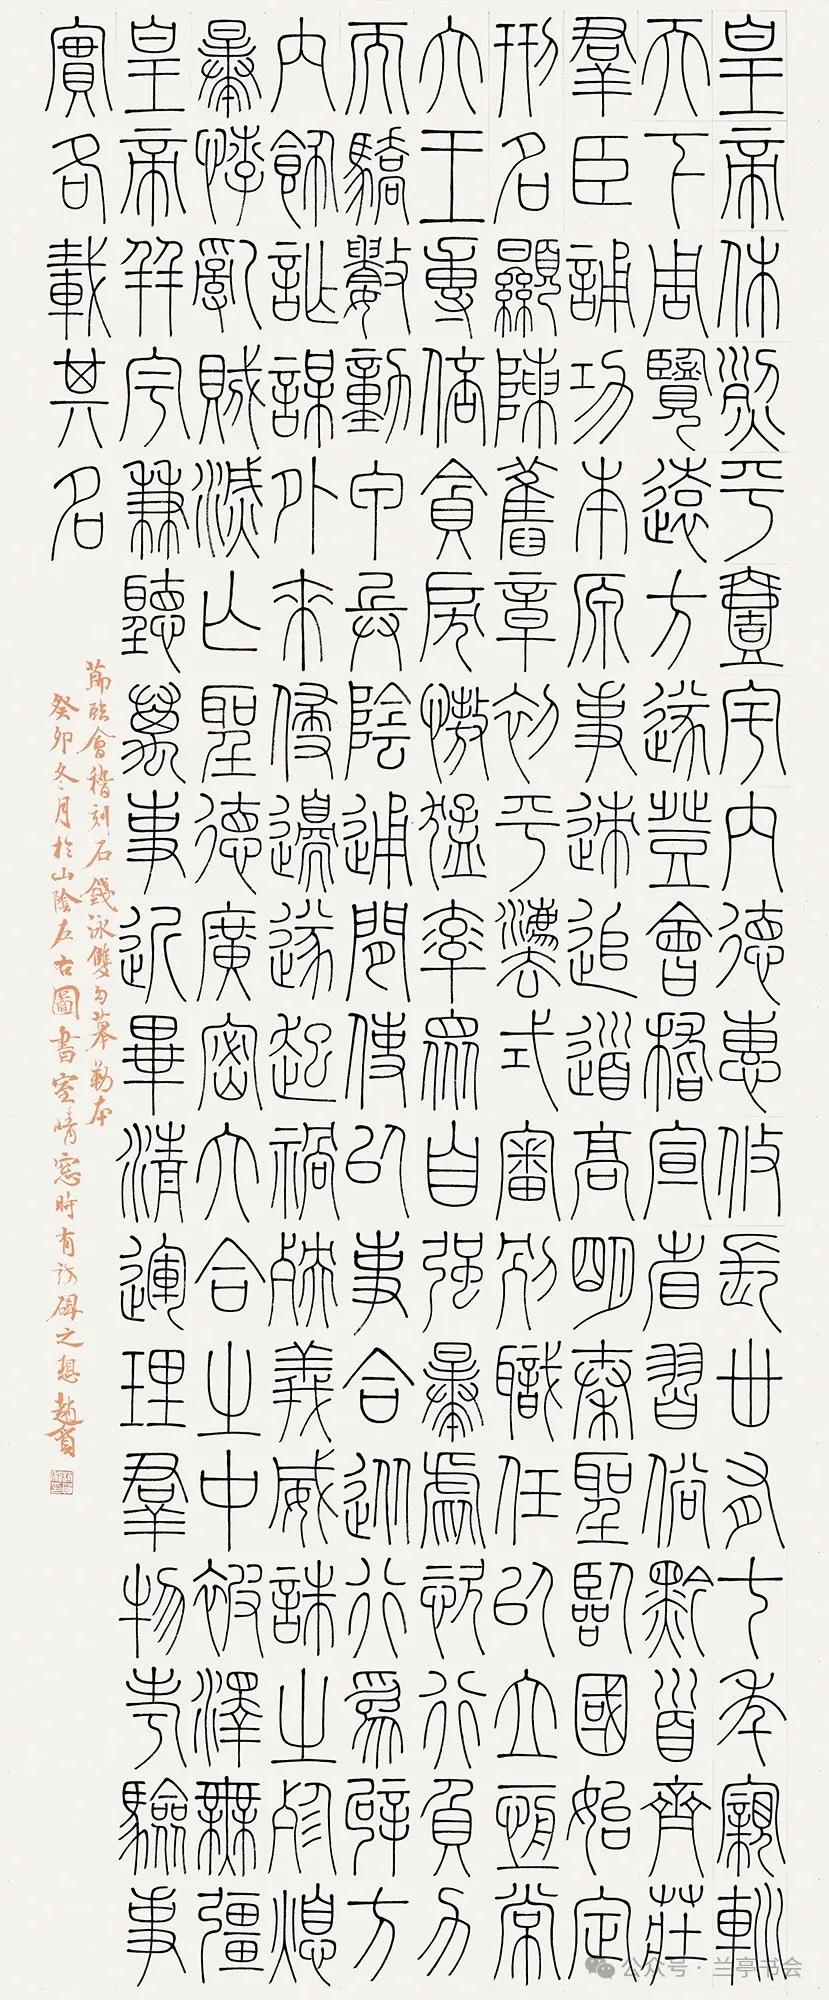 皇帝休烈平壹宇内德惠攸長卅有七年親巡
天下周覽遠方遂登會稽宣省習俗黔首齊莊
羣臣誦功本原事速追道高明秦聖臨國始定
刑名顯陳舊章初平灋式審別職任以立恆常
六王專倍貪戾慠猛率眾自强暴虐恣行負力
而驕數動甲兵陰通間使以事合從行爲辟方
内飾詐謀外來侵邊遂起禍殃義威誅之殄熄
暴悖亂賊滅亡聖德廣密六合之中被澤無疆
皇帝并宇兼聽萬事近畢清運理羣物考驗事
實各載其名
節臨會稽刻石錢泳雙勾摹勒本
癸卯冬月於山陰左右圖書室晴窓時有訪碑之想趙
公众号·兰亭书会